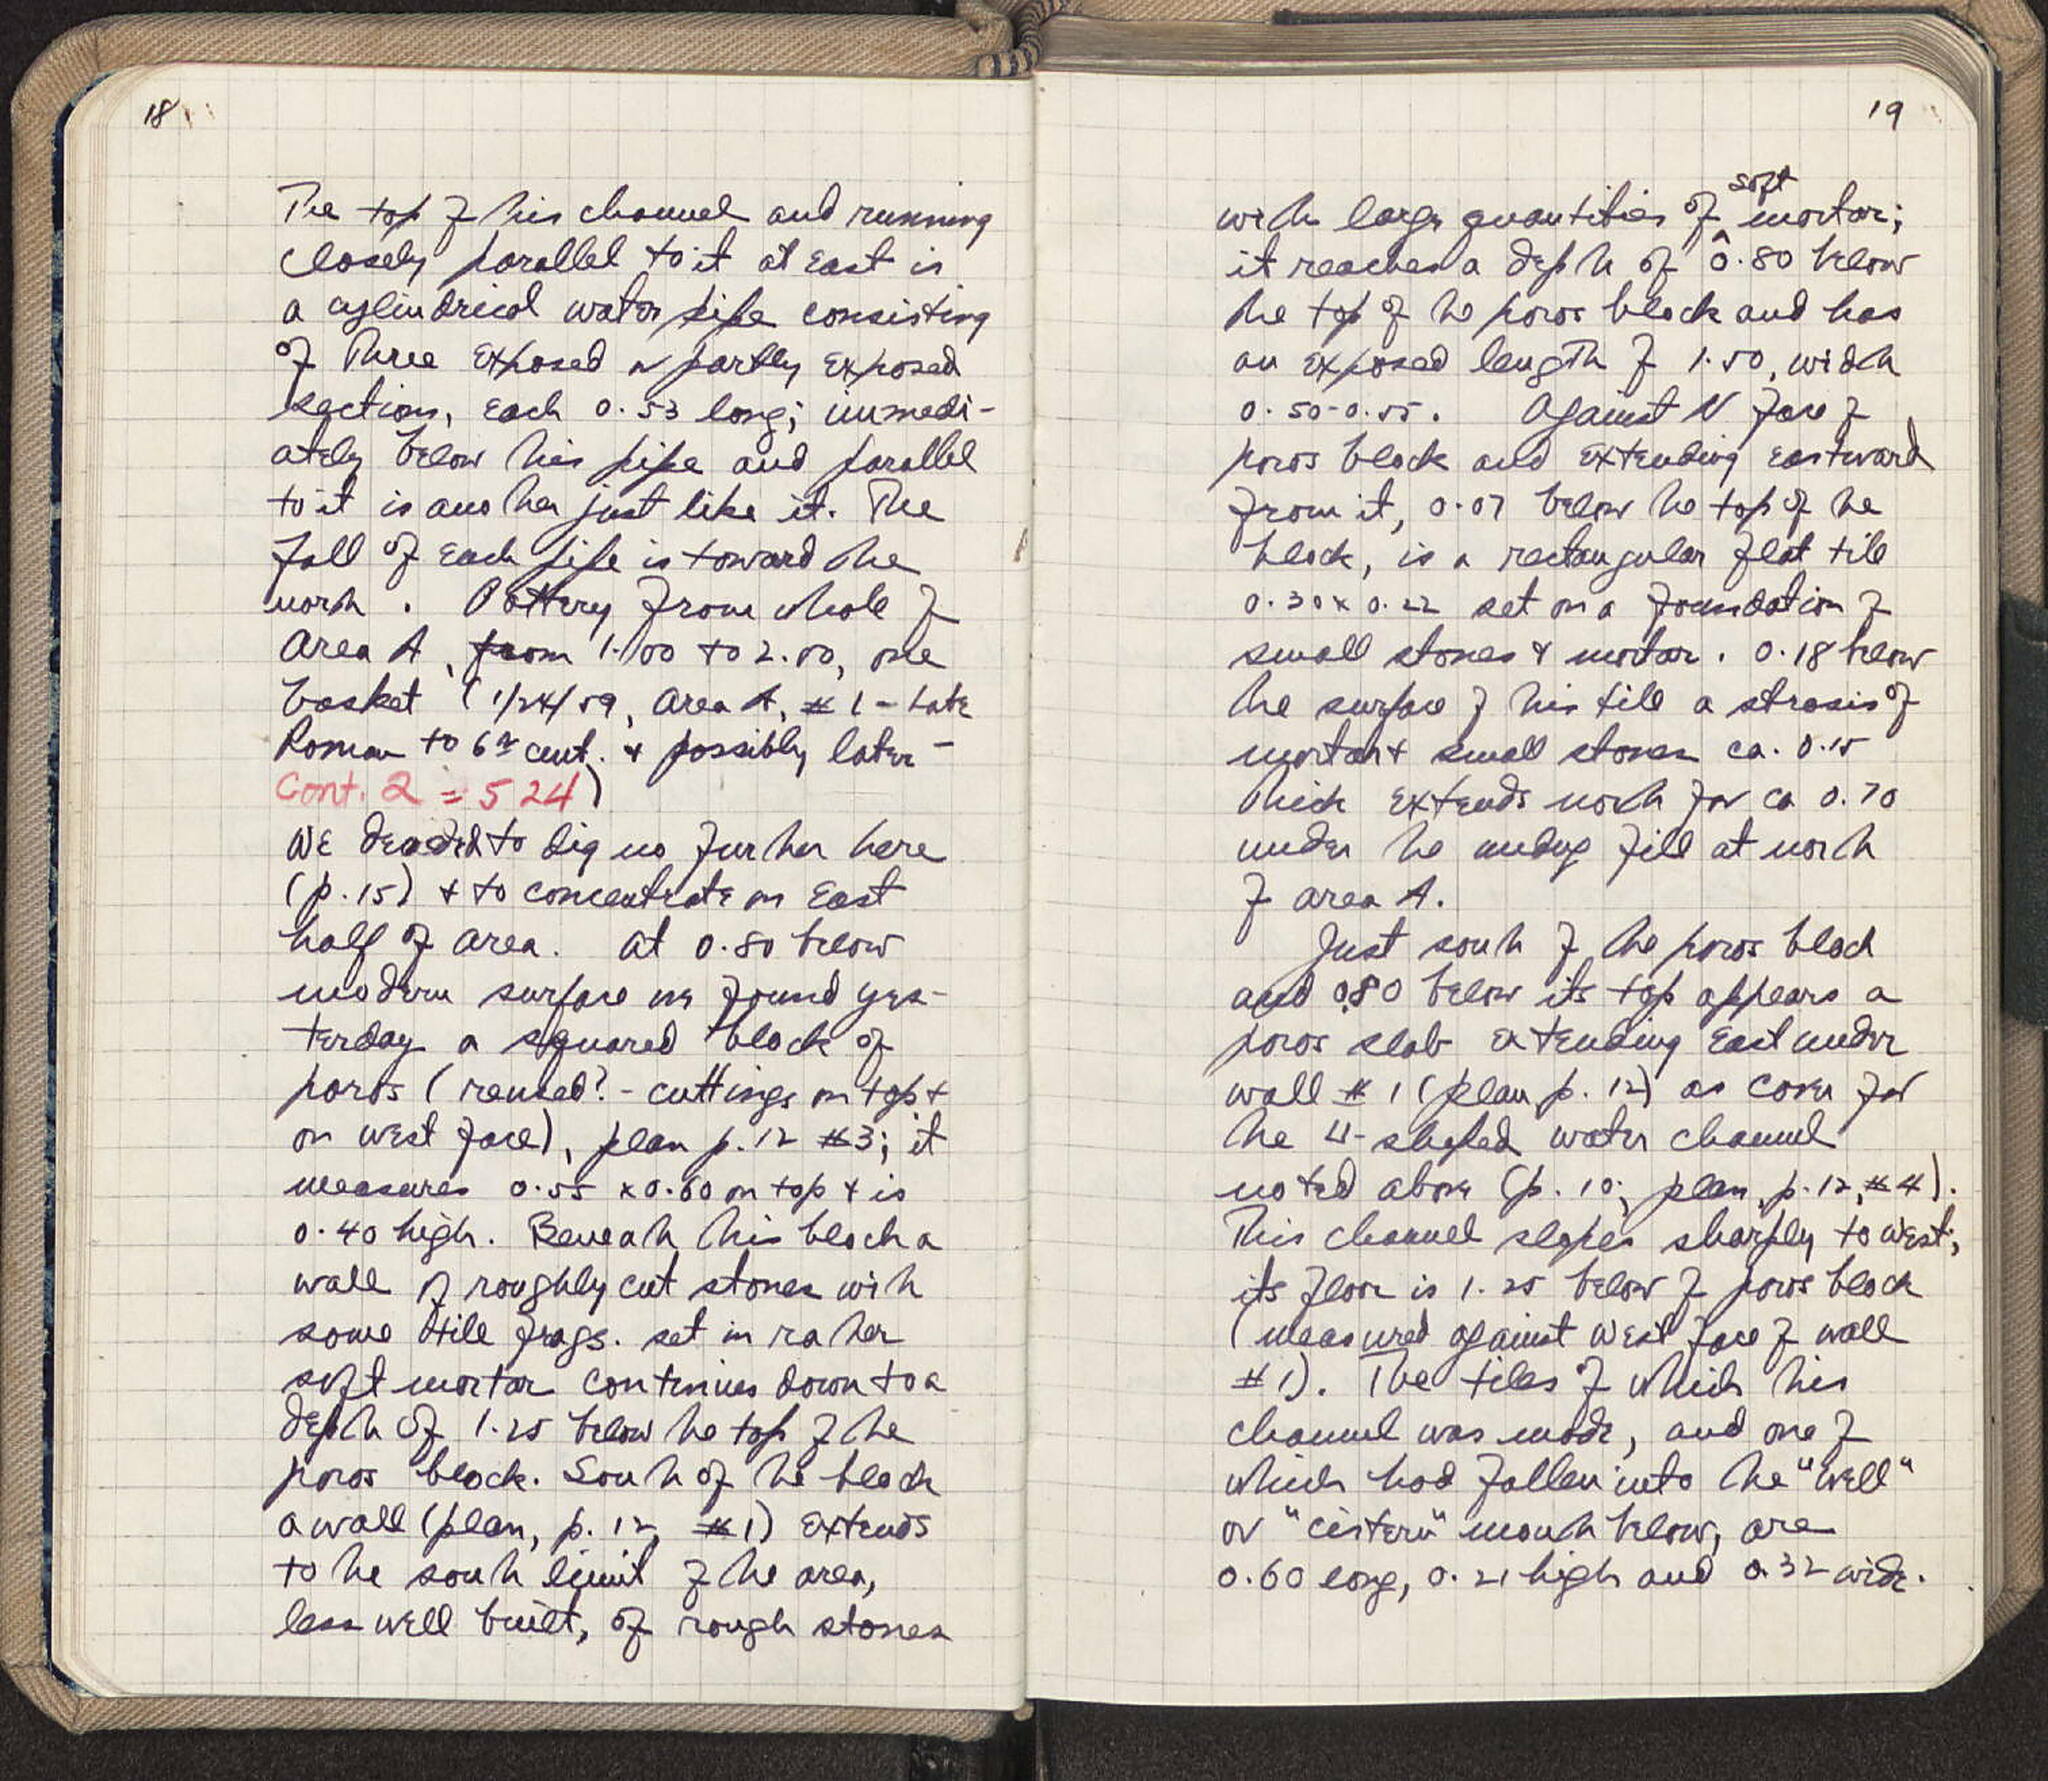 18
The top of this channel and running
closely parallel to it at east is
a cylindrical water pipe consisting
of three exposed or partly exposed
sections, each 0.53 long; immedi-
ately below this pipe and parallel
to it is another just like it. The
fall of each pipe is toward the
north. Pottery from whole of
Area A, from 1.00 to 2.00, one
basket (1/24/59, Area A, #1 - Late
Roman to 6th cent. & possibly later -
Cont. 2 = 524)
We decided to dig no further here
(p. 15) & to concentrate on East
half of area. At 0.80 below
modern surface we found yes-
terday a squared block of
poros (reused? - cuttings on top &
on west face), plan p. 12 #3; it
measures 0.55 x 0.60 on top & is
0.40 high. Beneath this block a
wall of roughly cut stones with
some tile frags. set in rather
soft mortar continues down to a
depth of 1.25 below the top of the
poros block. South of the block
a wall (plan, p. 12, #1) extends
to the south limit of the area,
less well built, of rough stones
19
with large quantities of soft mortar;
it reaches a depth of 0.80 below
the top of the poros block and has
an exposed length of 1.50, width
0.50-0.55. Against N face of
poros block and extending eastward
from it, 0.07 below the top of the
block, is a rectangular flat tile
0.30 x 0.22 set on a foundation of
small stones & mortar. 0.18 below
the surface of this tile a strosis of
mortar & small stones ca. 0.15
thick extends north for ca 0.70
under the undug fill at north
of area A.
Just south of the poros block
and 0.80 below its top appears a
poros slab extending East under
wall #1 (plan p. 12) as cover for
the U-shaped water channel
noted above (p. 10; plan, p. 12, #4).
This channel slopes sharply to west;
its floor is 1.25 below of poros block
(measured against west face of wall
#1). The tiles of which this
channel was made, and one of
which had fallen into the "well"
or "cistern" mouth below, are
0.60 long, 0.21 high and 0.32 wide.